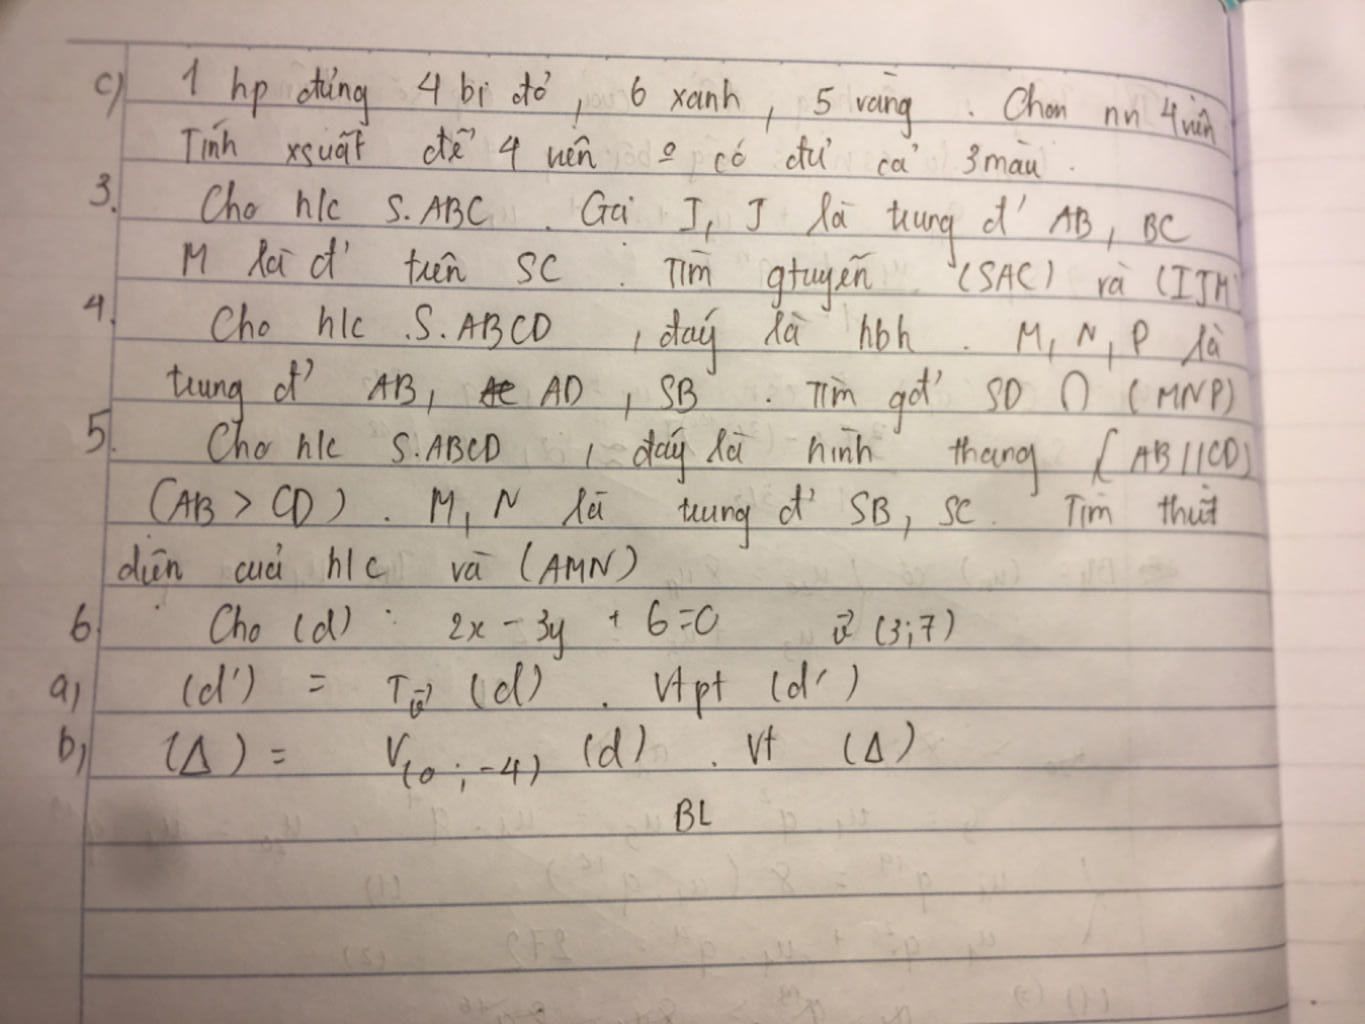 c) 1 hp đựng 4 bi đỏ, 6 xanh, 5 vàng. Chọn nn 4 viên
Tính xsuất để 4 viên o có đủ cả 3 màu.
3. Cho h/c S.ABC. Gọi I, J là trung đ' AB, BC
M là đ' trên SC. Tìm gtuyến (SAC) và (IJM)
4. Cho h/c .S.ABCD, đáy là hbh. M, N, P là
trung đ' AB, AD, SB. Tìm gđ' SD ∩ (MNP)
5. Cho h/c S.ABCD, đáy là hình thang (AB//CD)
(AB > CD). M, N là trung đ' SB, SC. Tìm thiết
diện của h/c và (AMN)
6. Cho (d): 2x - 3y + 6 = 0 v⃗ (3;7)
a, (d') = T_v⃗ (d). Vtpt (d')
b, (Δ) = V_(0;-4) (d). Vt (Δ)
BL